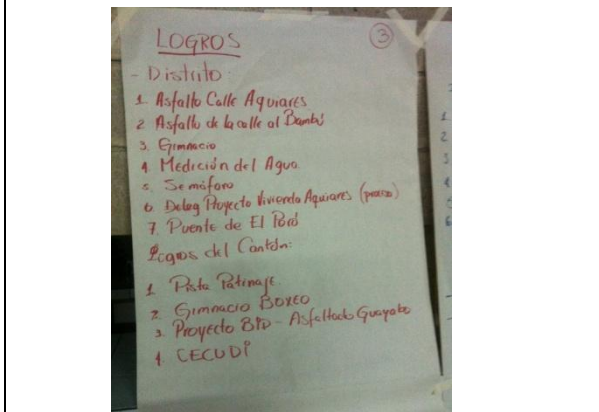 LOGROS
3
- Distrito:
1. Asfalto Calle Aquiares
2 Asfalto de la calle al Bambú
3. Gimnacio
4. Medición del Agua
5. Semáforo
6. Deleg Proyecto Vivienda Aquiares (proceso)
7. Puente de El Poró
Logros del Cantón:
1 Pista Patinaje
2 Gimnacio Boxeo
3. Proyecto BID - Asfaltado Guayabo
4. CECUDI
1
2
3
4
6